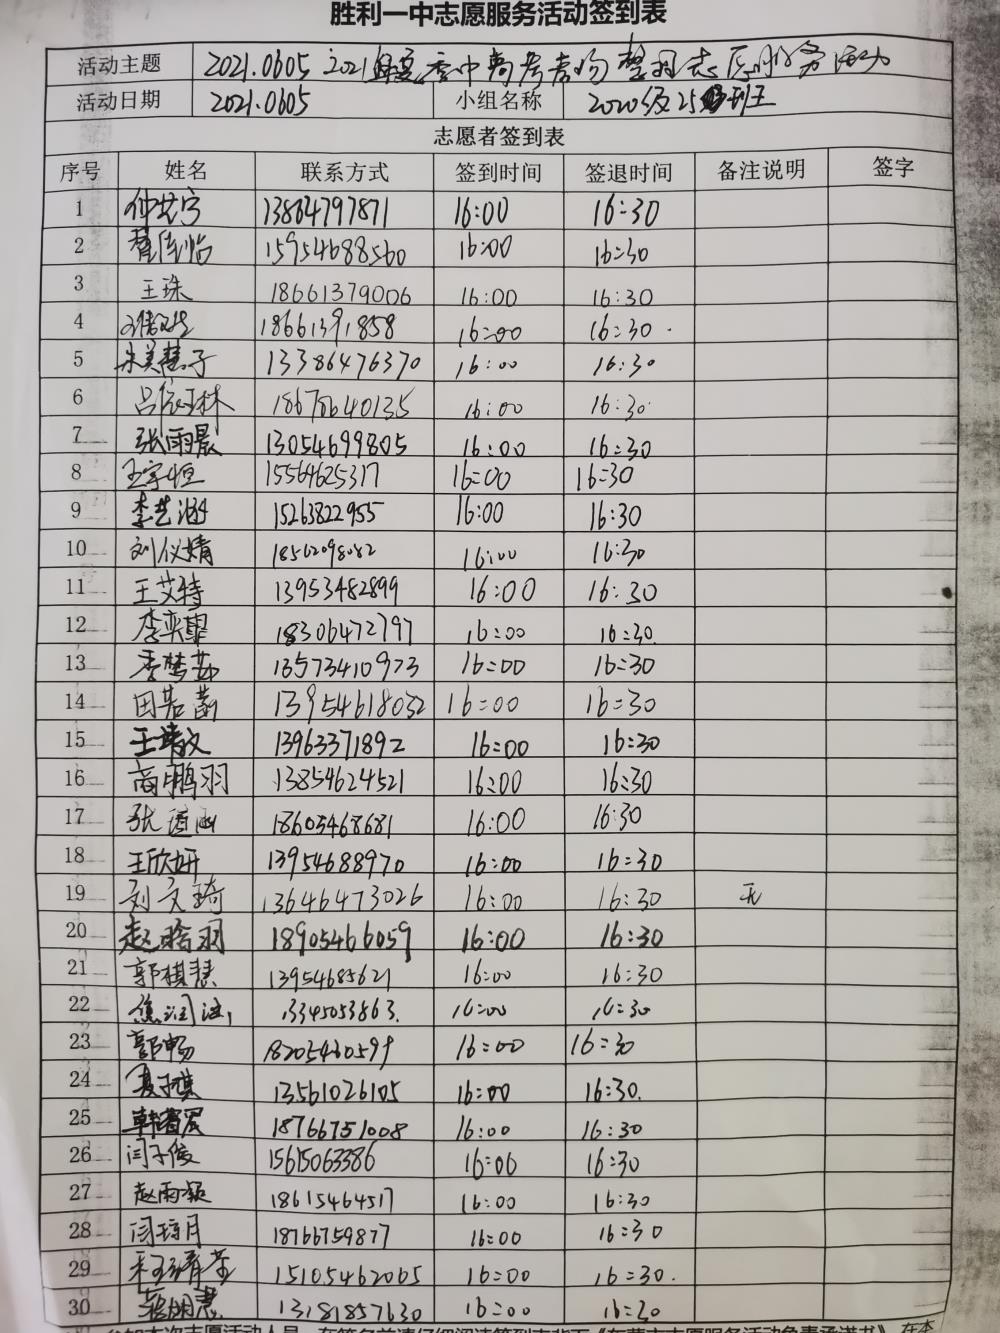 胜利一中志愿服务活动签到表
活动主题 2021.0605 2021 高考考场整理志愿服务活动
活动日期 2021.0605 小组名称 2020级25班
志愿者签到表
序号 姓名 联系方式 签到时间 签退时间 备注说明 签字
1 13864797871 16:00 16:30
2 15954688560 16:00 16:30
3 王珠 18661379006 16:00 16:30
4 18661391858 16:00 16:30
5 朱美慧子 13386476370 16:00 16:30
6 18678640135 16:00 16:30
7 张雨晨 13054699805 16:00 16:30
8 王宇恒 15564625317 16:00 16:30
9 李艺涵 15263822955 16:00 16:30
10 刘仪婧 18562098082 16:00 16:30
11 王艾特 13953482899 16:00 16:30
12 李奕霏 18306472797 16:00 16:30
13 李梦茹 13573410973 16:00 16:30
14 田若菡 13954618032 16:00 16:30
15 王靖文 13963371892 16:00 16:30
16 商鹏羽 13854624521 16:00 16:30
17 18605468681 16:00 16:30
18 王欣妍 13954688970 16:00 16:30
19 刘文琦 13646473026 16:00 16:30 无
20 赵晗羽 18905466059 16:00 16:30
21 郭棋慧 13954685621 16:00 16:30
22 13345053863 16:00 16:30
23 郭畅 18205460599 16:00 16:30
24 夏子棋 13561026105 16:00 16:30
25 18766751008 16:00 16:30
26 闫子俊 15615063386 16:00 16:30
27 赵雨颖 18615464517 16:00 16:30
28 闫琦月 18766759877 16:00 16:30
29 15105462065 16:00 16:30
30 13181857630 16:00 16:30
参加本次志愿活动人员，在签名前请仔细阅读签到表背面《东营市志愿服务活动免责承诺书》，在本